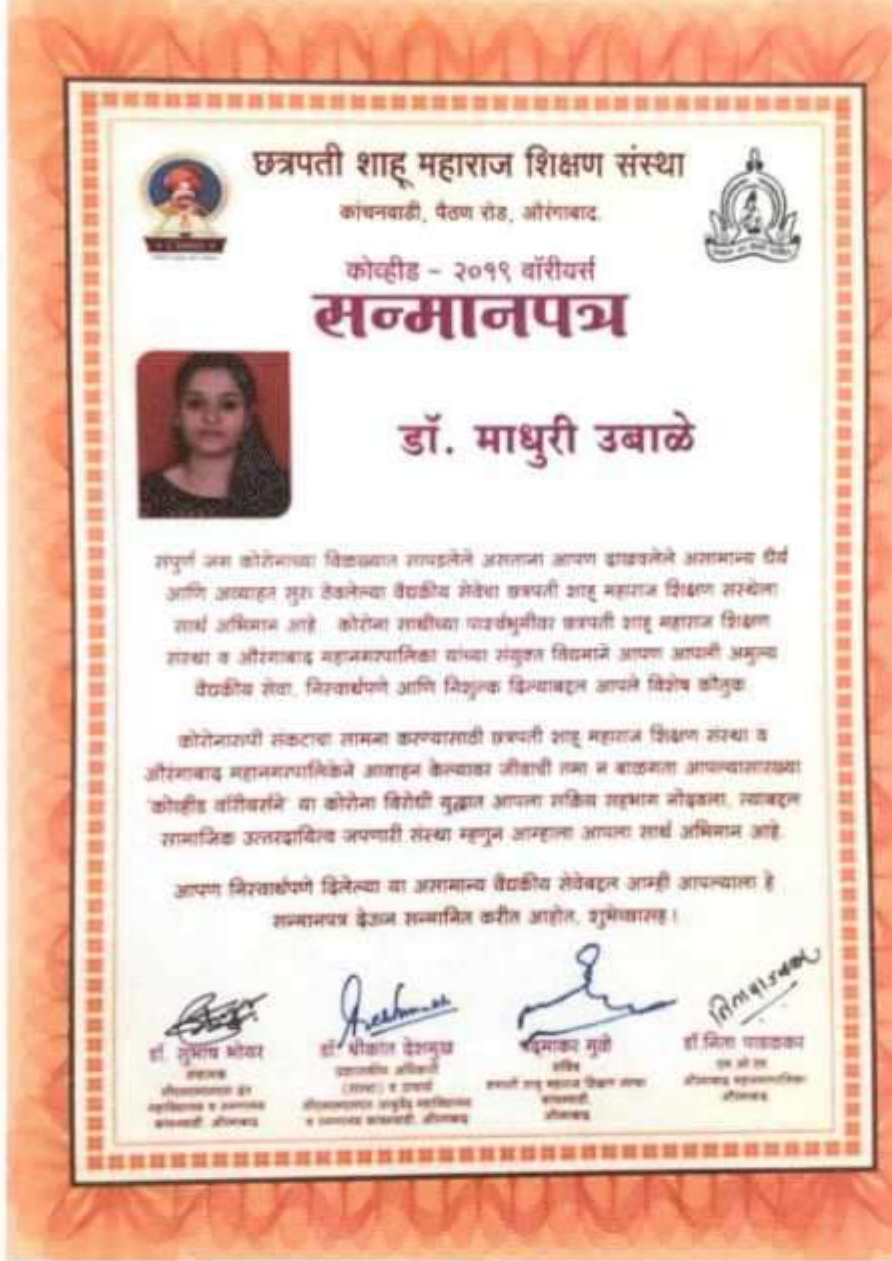 छत्रपती शाहू महाराज शिक्षण संस्था
कांचनवाडी, पैठण रोड, औरंगाबाद.
कोव्हीड - २०१९ वॉरीयर्स
सन्मानपत्र
डॉ. माधुरी उबाळे
संपुर्ण जग कोरोनाच्या विळख्यात सापडलेले असताना आपण दाखवलेले असामान्य धैर्य
आणि अव्याहत सुरु ठेवलेल्या वैद्यकीय सेवेचा छत्रपती शाहू महाराज शिक्षण संस्थेला
सार्थ अभिमान आहे. कोरोना साथीच्या पार्श्वभुमीवर छत्रपती शाहू महाराज शिक्षण
संस्था व औरंगाबाद महानगरपालिका यांच्या संयुक्त विद्यमाने आपण आपली अमुल्य
वैद्यकीय सेवा, निस्वार्थपणे आणि निशुल्क दिल्याबद्दल आपले विशेष कौतुक.
कोरोनारुपी संकटाचा सामना करण्यासाठी छत्रपती शाहू महाराज शिक्षण संस्था व
औरंगाबाद महानगरपालिकेने आवाहन केल्यावर जीवाची तमा न बाळगता आपल्यासारख्या
'कोव्हीड वॉरीयर्सने' या कोरोना विरोधी युद्धात आपला सक्रिय सहभाग नोंदवला, त्याबद्दल
सामाजिक उत्तरदायित्व जपणारी संस्था म्हणुन आम्हाला आपला सार्थ अभिमान आहे.
आपण निस्वार्थपणे दिलेल्या या असामान्य वैद्यकीय सेवेबद्दल आम्ही आपल्याला हे
सन्मानपत्र देऊन सन्मानित करीत आहोत, शुभेच्छासह।
डॉ. सुभाष भोयर
डॉ. श्रीकांत देशमुख
पद्माकर मुळे
डॉ. निता पाडळकर
प्रशासकीय अधिकारी
सचिव
एम ओ एच
(संस्था) व प्राचार्य
छत्रपती शाहू महाराज शिक्षण संस्था
औरंगाबाद महानगरपालिका
महाविद्यालय व रुग्णालय
कांचनवाडी,
औरंगाबाद
कांचनवाडी, औरंगाबाद
व रुग्णालय कांचनवाडी, औरंगाबाद
औरंगाबाद